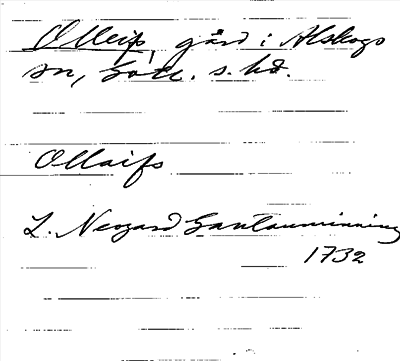 Olleifs, gård i Alskogs
sn, Gotl. s. hd.
Ollaifs
L. Neogard Gautauminning
1732